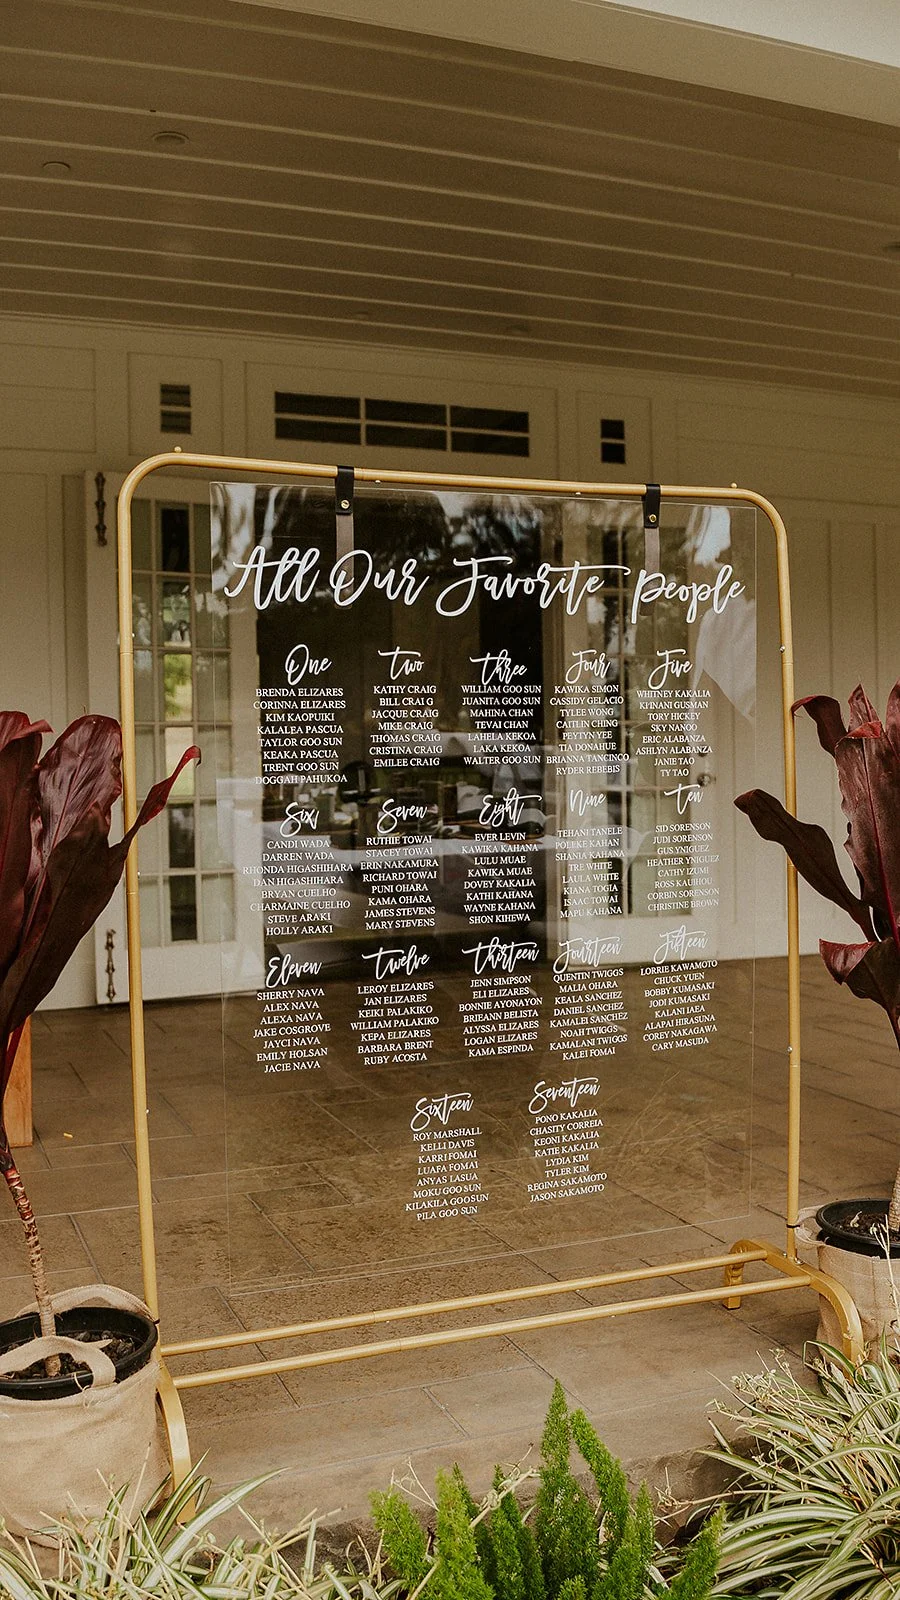 All Our Favorite People
One
BRENDA ELIZARES
CORINNA ELIZARES
KIM KAOPUIKI
KALALEA PASCUA
TAYLOR GOO SUN
KEAKA PASCUA
TRENT GOO SUN
DOGGAH PAHUKOA
Two
KATHY CRAIG
BILL CRAI G
JACQUE CRAIG
MIKE CRAIG
THOMAS CRAIG
CRISTINA CRAIG
EMILEE CRAIG
Three
WILLIAM GOO SUN
JUANITA GOO SUN
MAHINA CHAN
TEVAI CHAN
LAHELA KEKOA
LAKA KEKOA
WALTER GOO SUN
Four
KAWIKA SIMON
CASSIDY GELACIO
TYLEE WONG
CAITLIN CHING
PEYTYN YEE
TIA DONAHUE
BRIANNA TANCINCO
RYDER REBEBIS
Five
WHITNEY KAKALIA
KI'INANI GUSMAN
TORY HICKEY
SKY NANOD
ERIC ALABANZA
ASHLYN ALABANZA
JANIE TAO
TY TAO
Six
CANDI WADA
DARREN WADA
RHONDA HIGASHIHARA
DAN HIGASHIHARA
BRYAN CUELHO
CHARMAINE CUELHO
STEVE ARAKI
HOLLY ARAKI
Seven
RUTHIE TOWAI
STACEY TOWAI
ERIN NAKAMURA
RICHARD TOWAI
PUNI OHARA
KAMA OHARA
JAMES STEVENS
MARY STEVENS
Eight
EVER LEVIN
KAWIKA KAHANA
LULU MUAE
KAWIKA MUAE
DOVEY KAKALIA
KATHI KAHANA
WAYNE KAHANA
SHON KIHEWA
Nine
TEHANI TANELE
POLEKE KAHAN
SHANIA KAHANA
TRE WHITE
LAULA WHITE
KIANA TOGIA
ISAAC TOWAI
MAPU KAHANA
Ten
SID SORENSON
JUDI SORENSON
GUS YNIGUEZ
HEATHER YNIGUEZ
CATHY IZUMI
ROSS KAUHOU
CORBIN SORENSON
CHRISTINE BROWN
Eleven
SHERRY NAVA
ALEX NAVA
ALEXA NAVA
JAKE COSGROVE
JAYCI NAVA
EMILY HOLSAN
JACIE NAVA
Twelve
LEROY ELIZARES
JAN ELIZARES
KEIKI PALAKIKO
WILLIAM PALAKIKO
KEPA ELIZARES
BARBARA BRENT
RUBY ACOSTA
Thirteen
JENN SIMPSON
ELI ELIZARES
BONNIE AYONAYON
BRIEANN BELISTA
ALYSSA ELIZARES
LOGAN ELIZARES
KAMA ESPINDA
Fourteen
QUENTIN TWIGGS
MALIA OHARA
KEALA SANCHEZ
DANIEL SANCHEZ
KAMALEI SANCHEZ
NOAH TWIGGS
KAMALANI TWIGGS
KALEI FOMAI
Fifteen
LORRIE KAWAMOTO
CHUCK YUEN
BOBBY KUMASAKI
JODI KUMASAKI
KALANI JAEA
ALAPAI HIRASUNA
COREY NAKAGAWA
CARY MASUDA
Sixteen
ROY MARSHALL
KELLI DAVIS
KARRI FOMAI
LUAFA FOMAI
ANYAS LASUA
MOKU GOO SUN
KILAKILA GOO SUN
PILA GOO SUN
Seventeen
PONO KAKALIA
CHASITY CORREIA
KEONI KAKALIA
KATIE KAKALIA
LYDIA KIM
TYLER KIM
REGINA SAKAMOTO
JASON SAKAMOTO